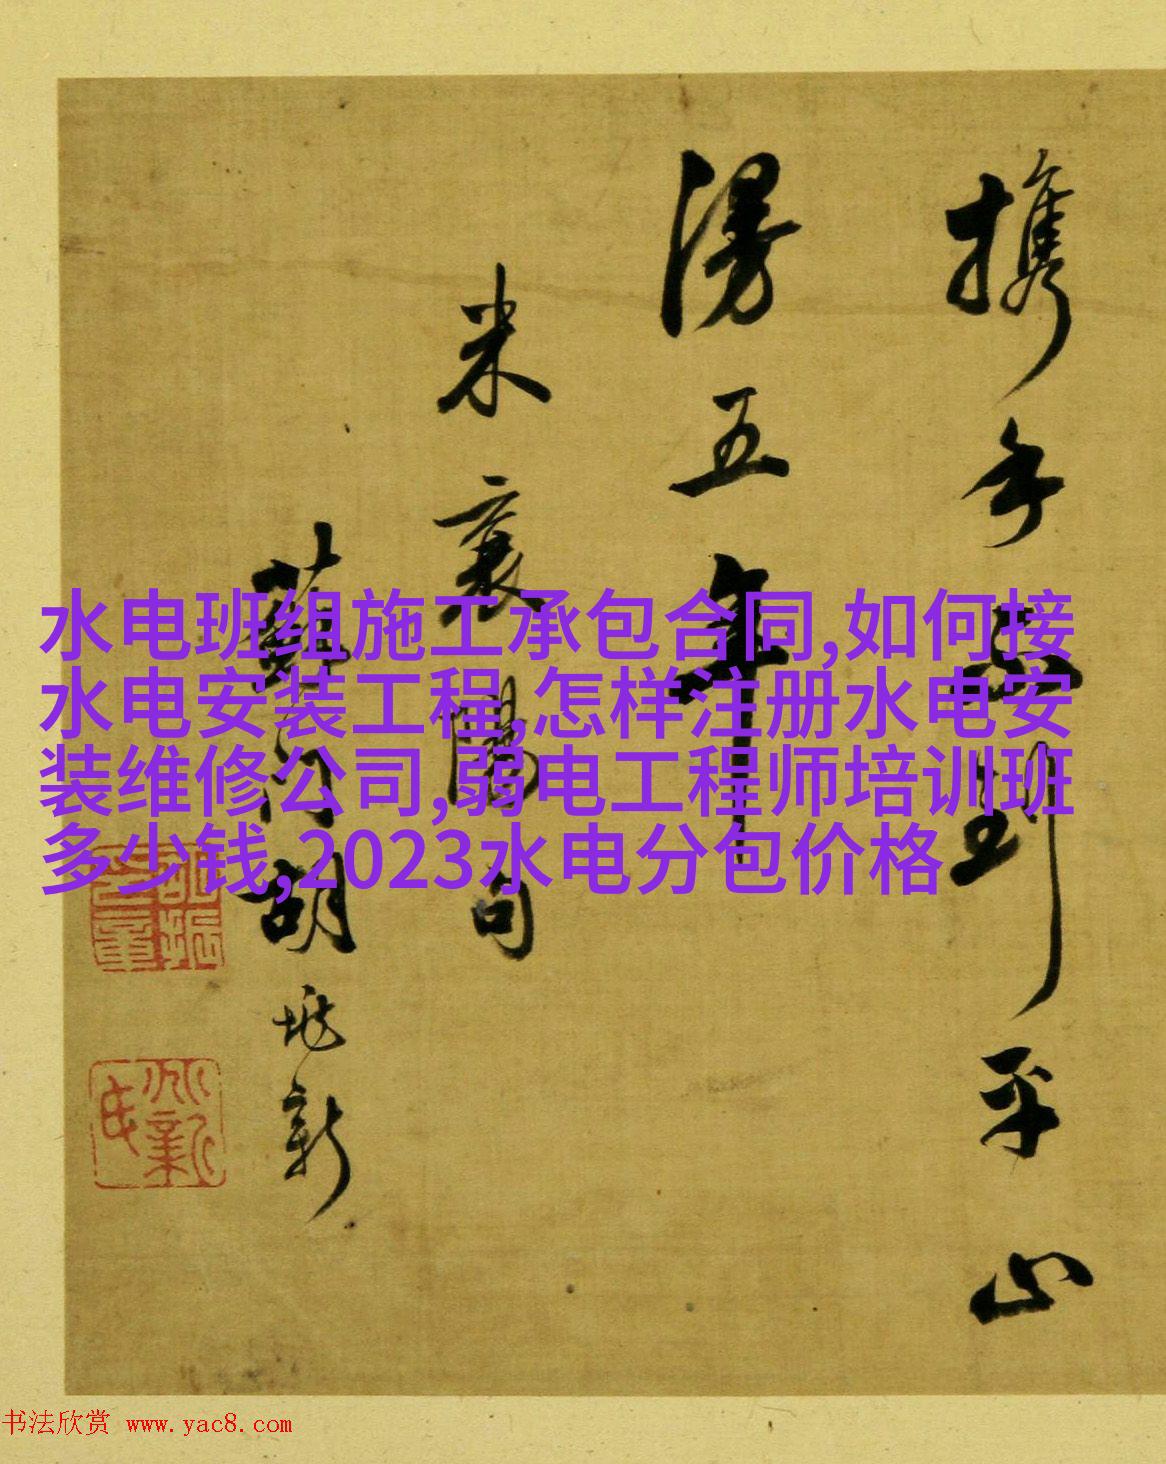 携手到平山
漫五年
米襄陽句
蘇門胡垗新
水电班组施工承包合同,如何接
水电安装工程,怎样注册水电安
装维修公司,弱电工程师培训班
多少钱,2023水电分包价格
书法欣赏 www.yac8.com